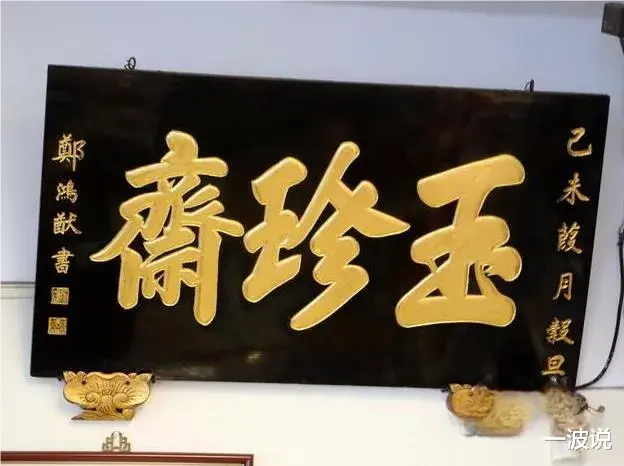 己未葭月穀旦
玉珍齋
鄭鴻猷書
一波说